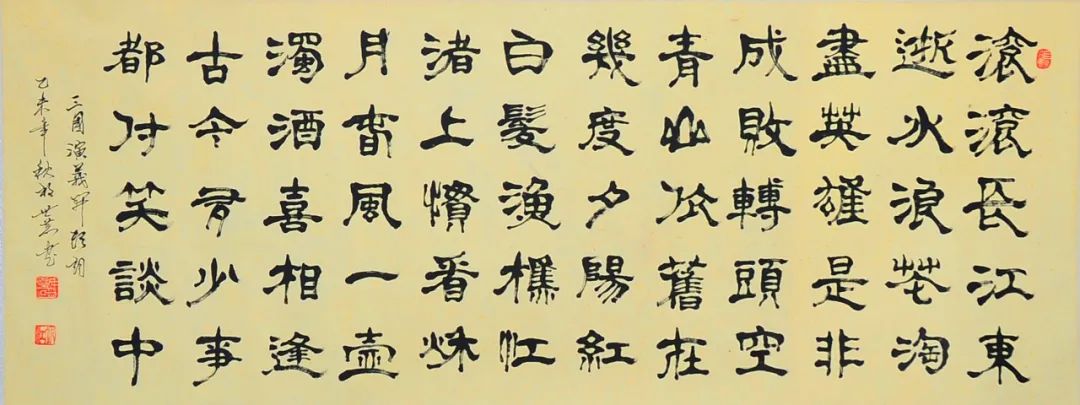 滾滾長江東
逝水浪花淘
盡英雄是非
成敗轉頭空
青山依舊在
幾度夕陽紅
白髮漁樵江
渚上慣看秋
月春風一壺
濁酒喜相逢
古今多少事
都付笑談中
三國演義
乙未年秋